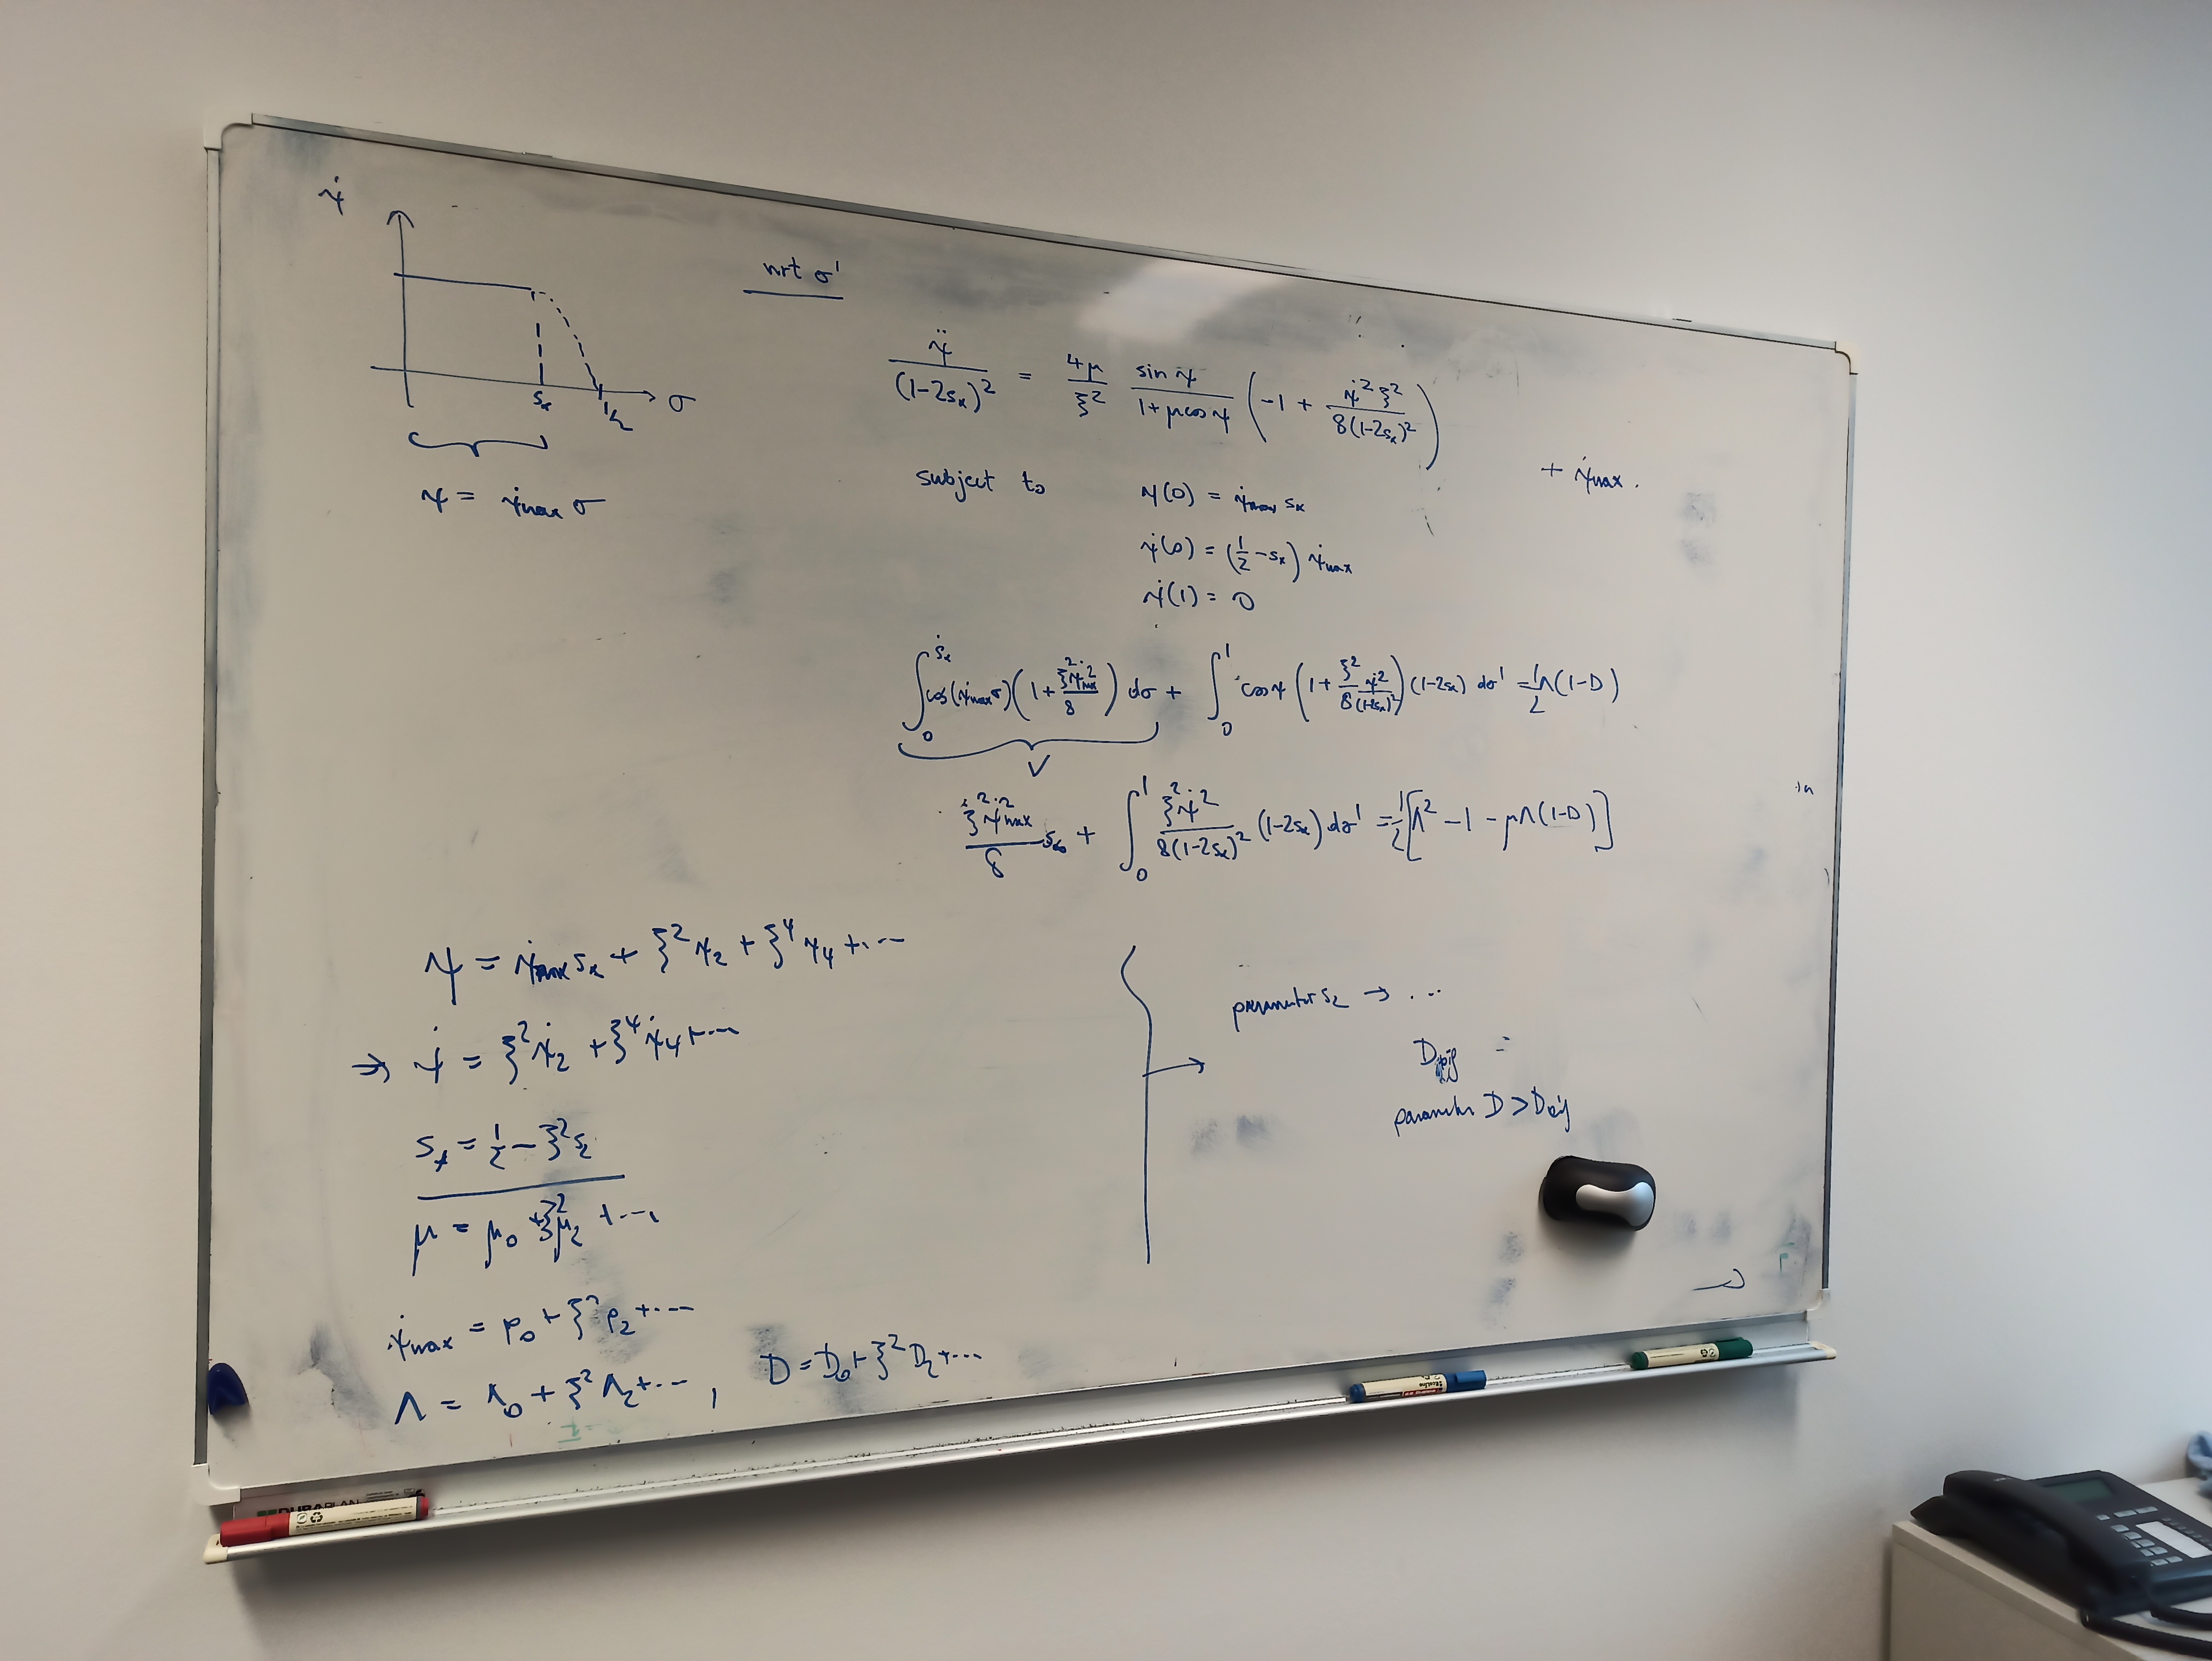 ψ̇
σ
s* 1/2
ψ = ψ̇max σ
wrt σ'
ψ̈ / (1-2s*)² = 4μ/ξ² sin ψ / (1+μcos ψ) ( -1 + ψ̇² ξ² / 8(1-2s*)² )
+ ψ̇max .
subject to ψ(0) = ψ̇max s*
ψ̇(0) = (1/2 - s*) ψ̇max
ψ̇(1) = 0
∫₀^s* cos(ψ̇max σ)(1 + ξ²ψ̇²max / 8) dσ + ∫₀¹ cos ψ (1 + ξ² ψ̇² / 8(1-2s*)²)(1-2s*) dσ' = 1/2 Λ(1-D)
V
ξ²ψ̇²max / 8 s* + ∫₀¹ ξ²ψ̇² / 8(1-2s*)² (1-2s*) dσ' = 1/2 [Λ² - 1 - μΛ(1-D)]
ψ = ψ̇max s* + ξ² ψ₂ + ξ⁴ ψ₄ + ...
⇒ ψ̇ = ξ² ψ̇₂ + ξ⁴ ψ̇₄ + ...
s* = 1/2 - ξ² s₂
μ = μ₀ + ξ² μ₂ + ...
ψ̇max = p₀ + ξ² p₂ + ...
Λ = Λ₀ + ξ² Λ₂ + ... , D = D₀ + ξ² D₂ + ...
→ parameter s₂ → ...
=
parameter D >